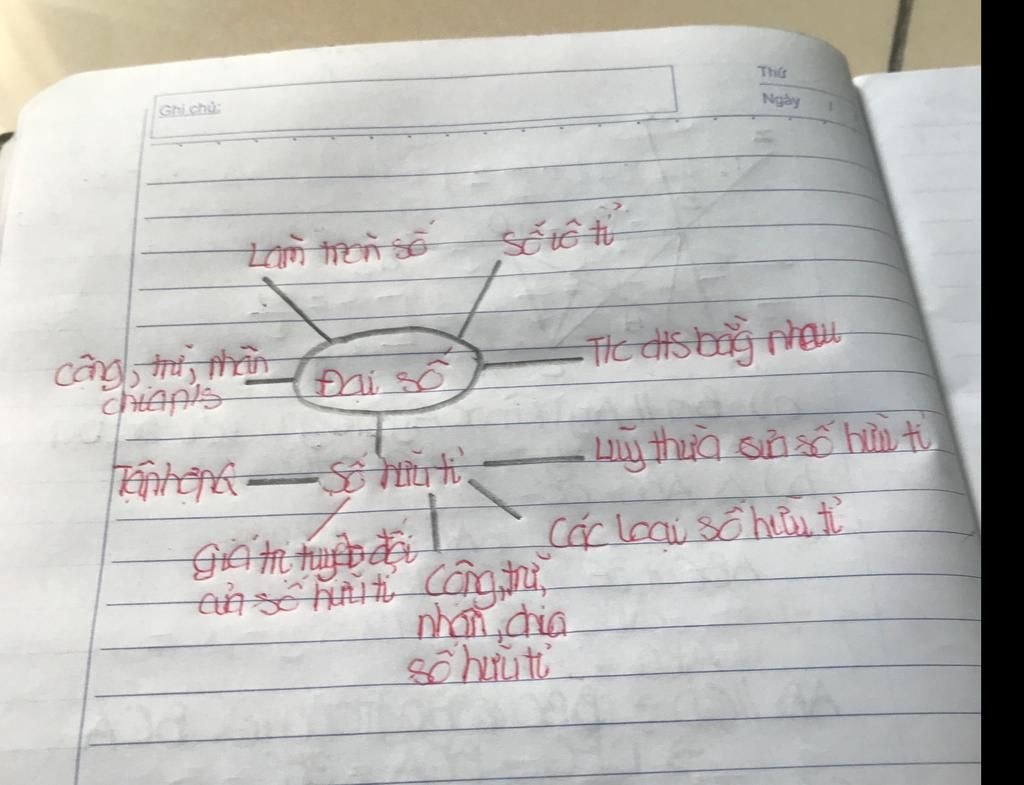 Ghi chú:
Thứ
Ngày
Làm tròn số
Số vô tỉ
Cộng, trừ, nhân
chia p/s
Đại số
T/c dts bằng nhau
Tập hợp Q
Số hữu tỉ
Luỹ thừa của số hữu tỉ
Các loại số hữu tỉ
Giá trị tuyệt đối
của số hữu tỉ
Cộng, trừ,
nhân, chia
số hữu tỉ